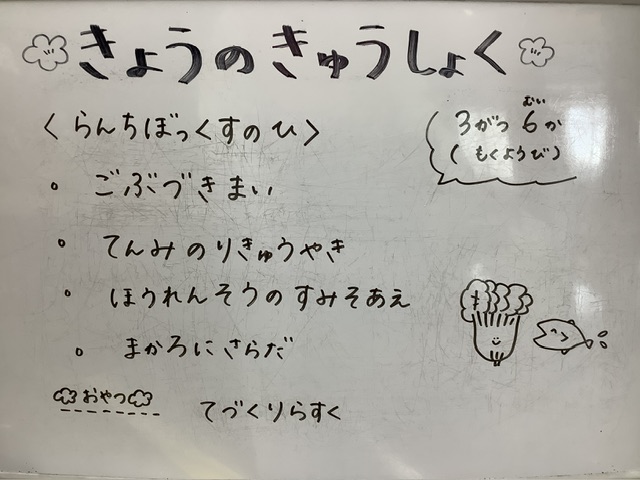 きょうのきゅうしょく
<らんちぼっくすのひ>
むい
3がつ 6か
(もくようび)
・ ごぶづきまい
・ てんみのりきゅうやき
・ ほうれんそうのすみそあえ
・ まかろにさらだ
おやつ てづくりらすく